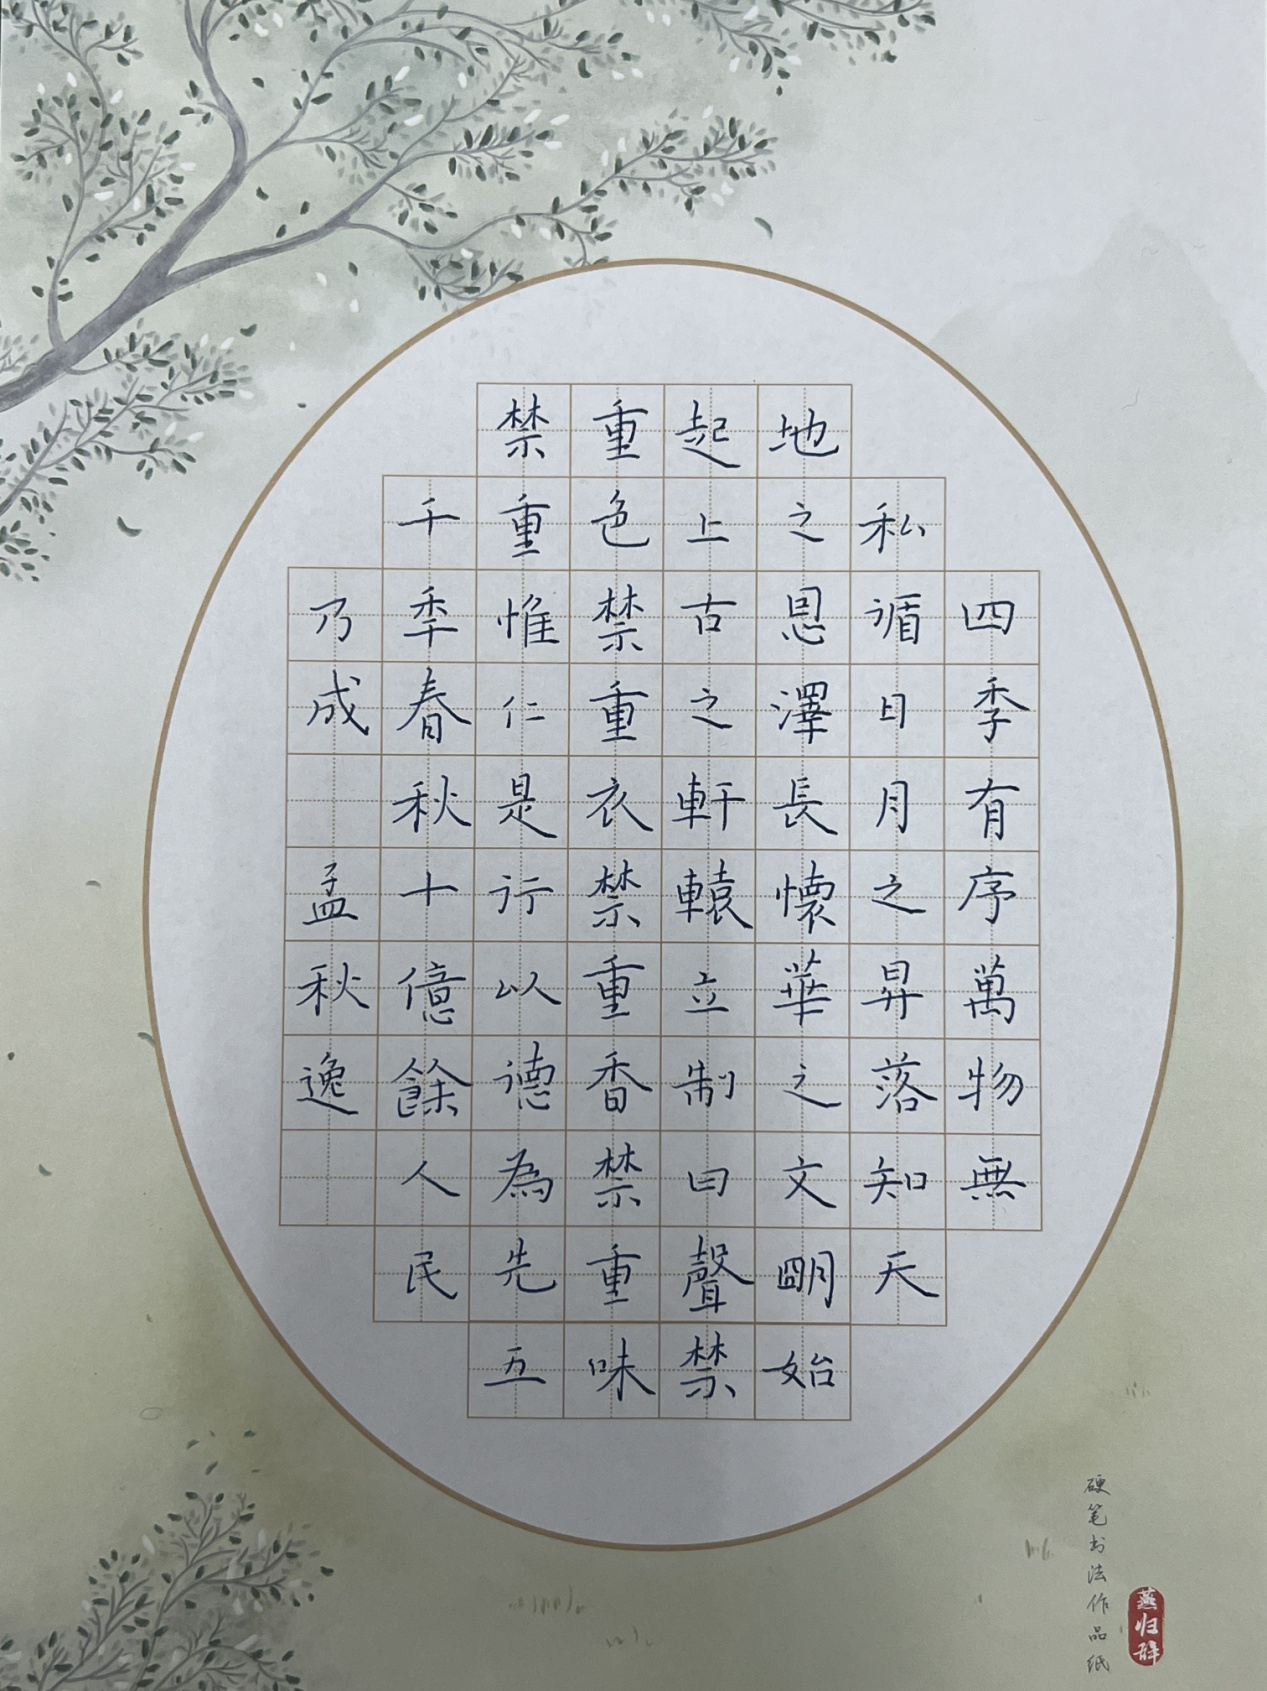 四季有序萬物無
私循日月之昇落知天
地之恩澤長懷華之文明始
起上古之軒轅立制曰聲禁
重色禁重衣禁重香禁重味
禁重惟仁是行以德為先五
千季春秋十億餘人民
乃成 孟秋逸
硬笔书法作品纸
燕归辞